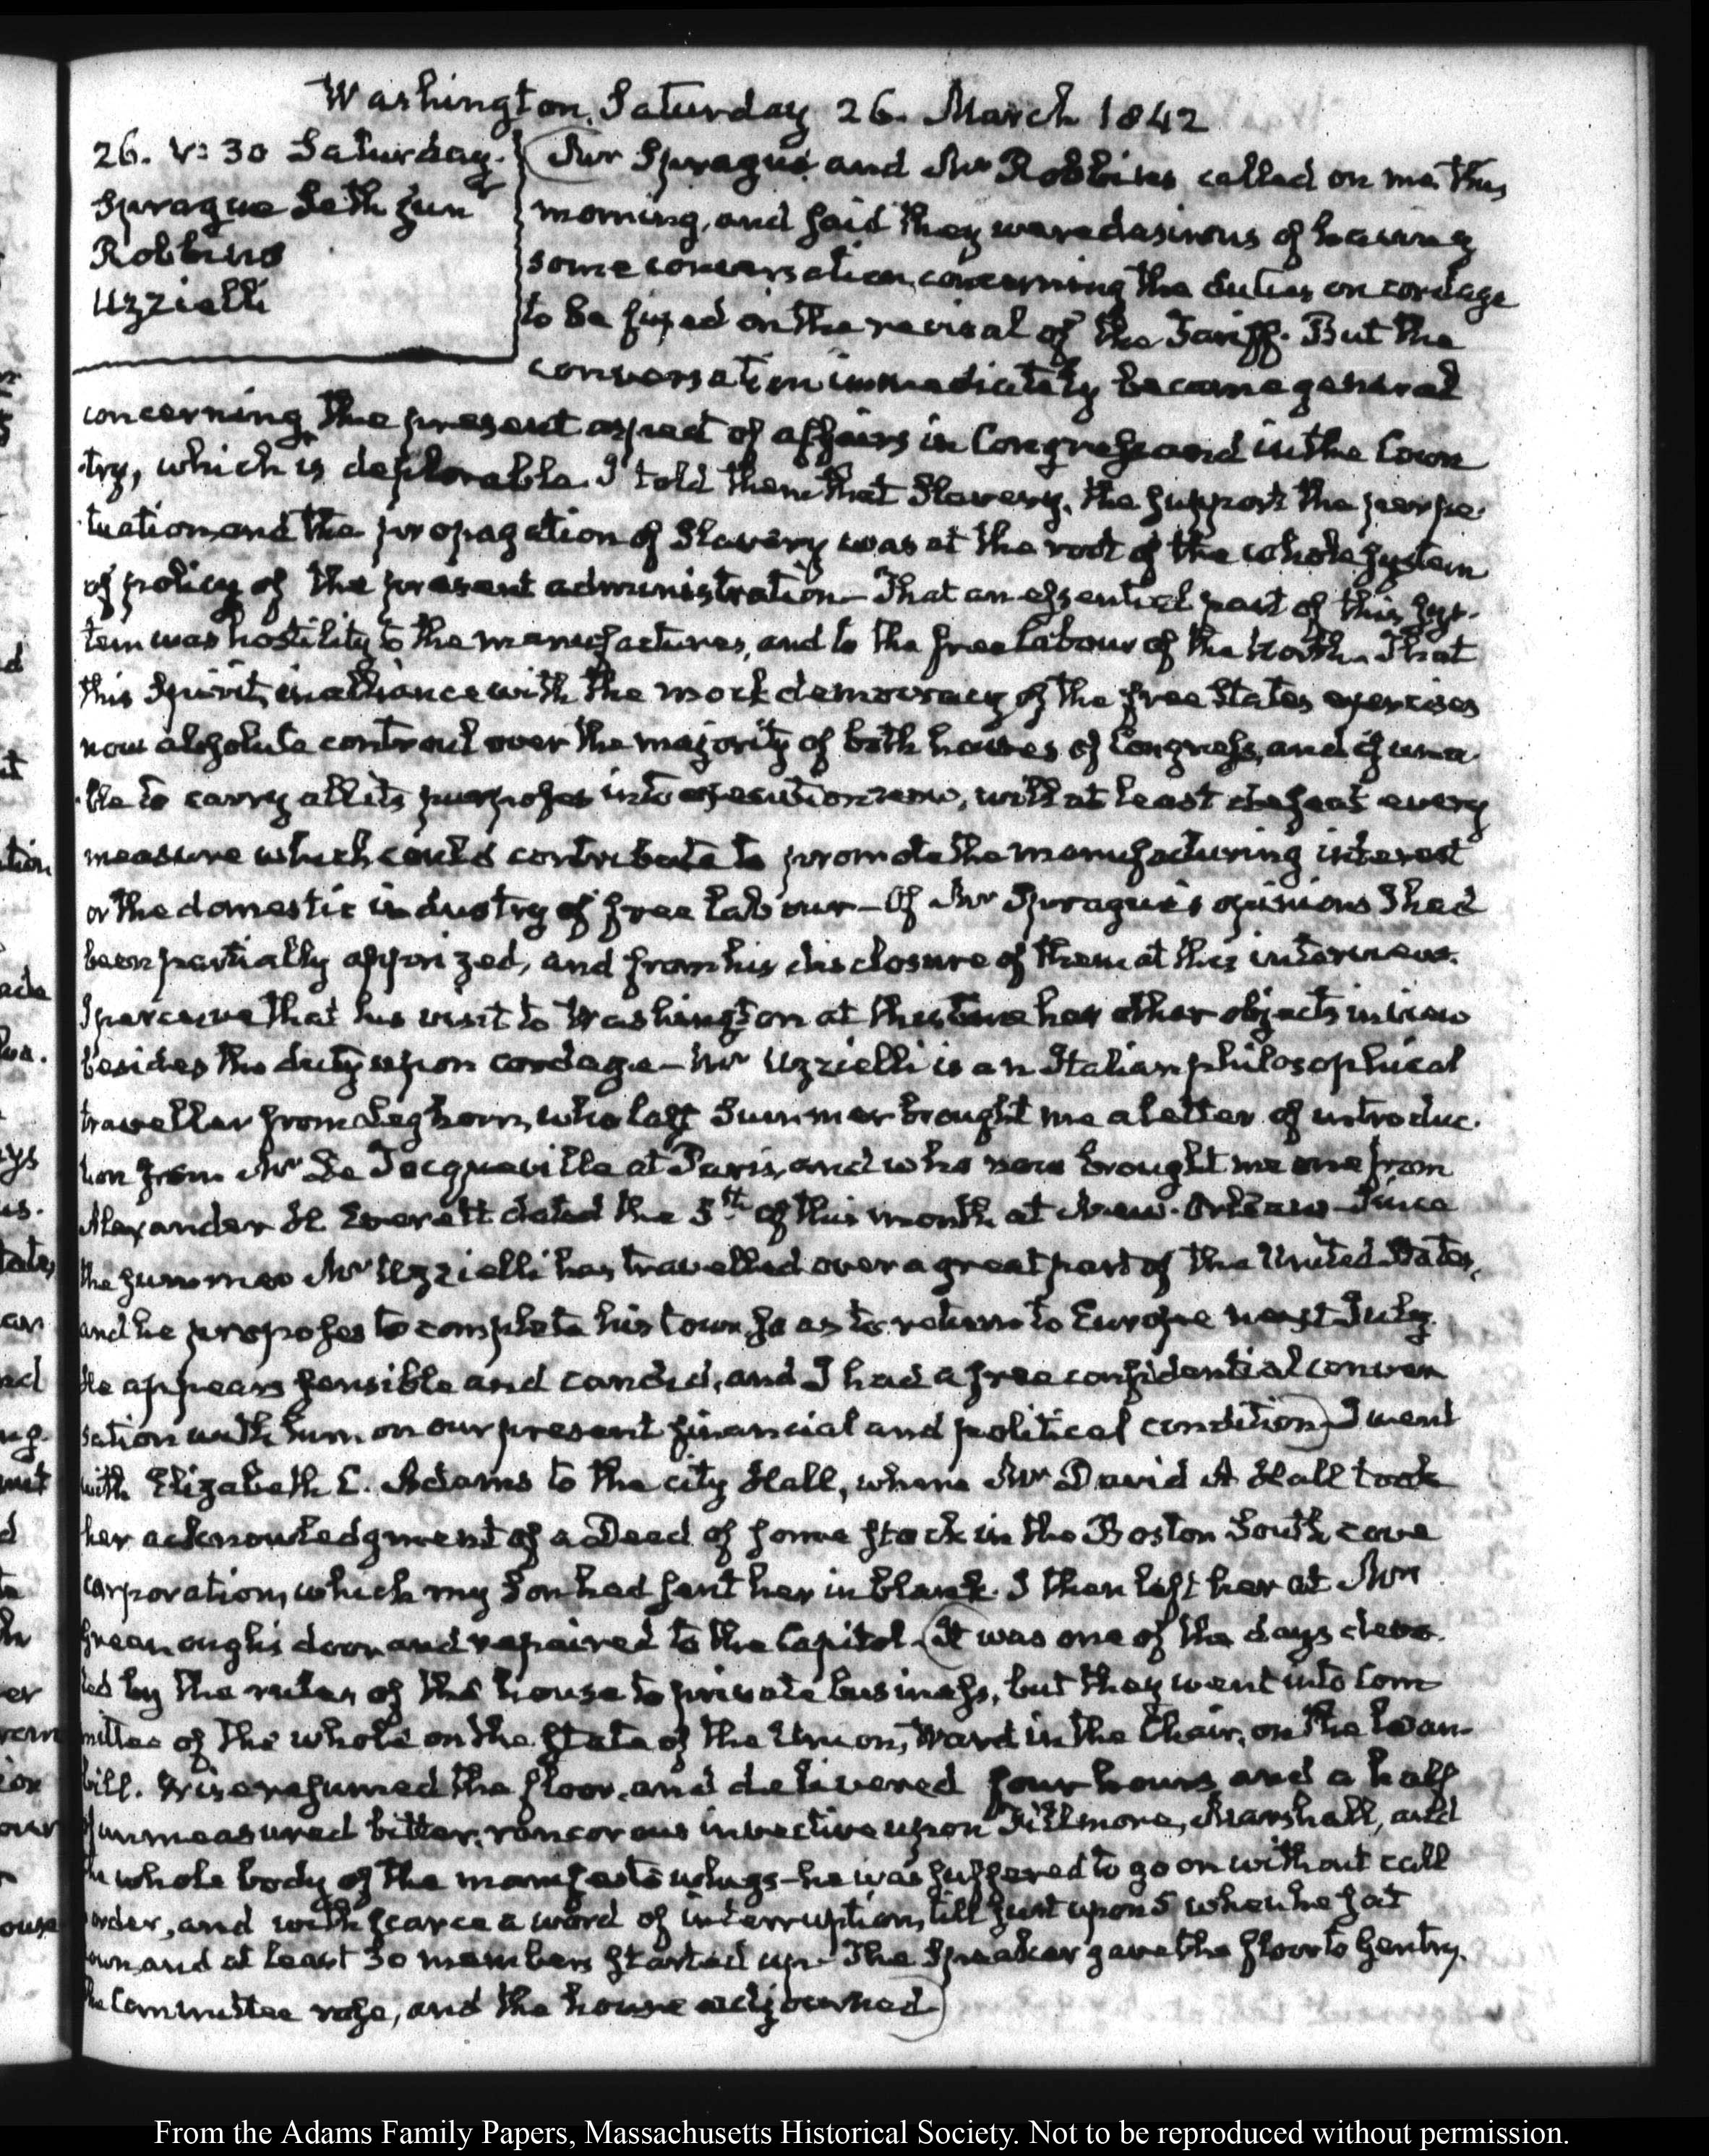 Washington, Saturday 26. March 1842
26. V: 30 Saturday.
Sprague Seth junr
Robbins
Uzzielli
Mr Sprague and Mr Robbins called on me this
morning, and said they were desirous of having
some conversation, concerning the duties on cordage
to be fixed on the revisal of the Tariff. But the
conversation immediately became general
concerning the present aspect of affairs in Congress and in the Coun
try, which is deplorable. I told them that Slavery, the support the perpe-
tuation, and the propagation of Slavery was at the root of the whole system
of policy of the present administration— That an essential part of this Sys-
tem was hostility to the manufactures, and to the free labour of the North. That
this Spirit, in alliance with the mock democracy of the free States exercises
now absolute controul over the majority of both houses of Congress, and if una-
ble to carry all its purposes into execution now, will at least defeat every
measure which could contribute to promote the manufacturing interest
or the domestic industry of free labour— Of Mr Sprague's opinions I had
been partially apprized, and from his disclosure of them at this interview.
I perceive that his visit to Washington at this time has other objects in view
besides the duty upon cordage— Mr Uzzielli is an Italian philosophical
traveller from Leghorn, who last Summer brought me a letter of introduc-
tion from Mr De Tocqueville at Paris, and who now brought me one from
Alexander H Everett dated the 5th of this month at New-Orleans— Since
the summer Mr Uzzielli has travelled over a great part of the United States,
and he proposes to complete his tour, so as to return to Europe next July.
He appears sensible and candid, and I had a free confidential conver
sation with him on our present financial and political condition) I went
with Elizabeth C. Adams to the city Hall, where Mr David A Hall took
her acknowledgment of a Deed of some stock in the Boston South cove
corporation, which my Son had sent her in blank. I then left her at Mrs
Greenough's door and repaired to the Capitol. (It was one of the days devo-
ted by the rules of the house to private business, but they went into Com
mittee of the whole on the state of the Union, Ward in the Chair, on the Loan-
bill. Wise resumed the floor, and delivered four hours and a half
of unmeasured bitter, rancorous invective upon Fillmore, Marshall, and
the whole body of the manifesto whigs— he was suffered to go on without call
order, and with scarce a word of interruption, till just upon 5 when he sat
down, and at least 30 members started up— The Speaker gave the floor to Gentry.
the Committee rose, and the house adjourned)
From the Adams Family Papers, Massachusetts Historical Society. Not to be reproduced without permission.